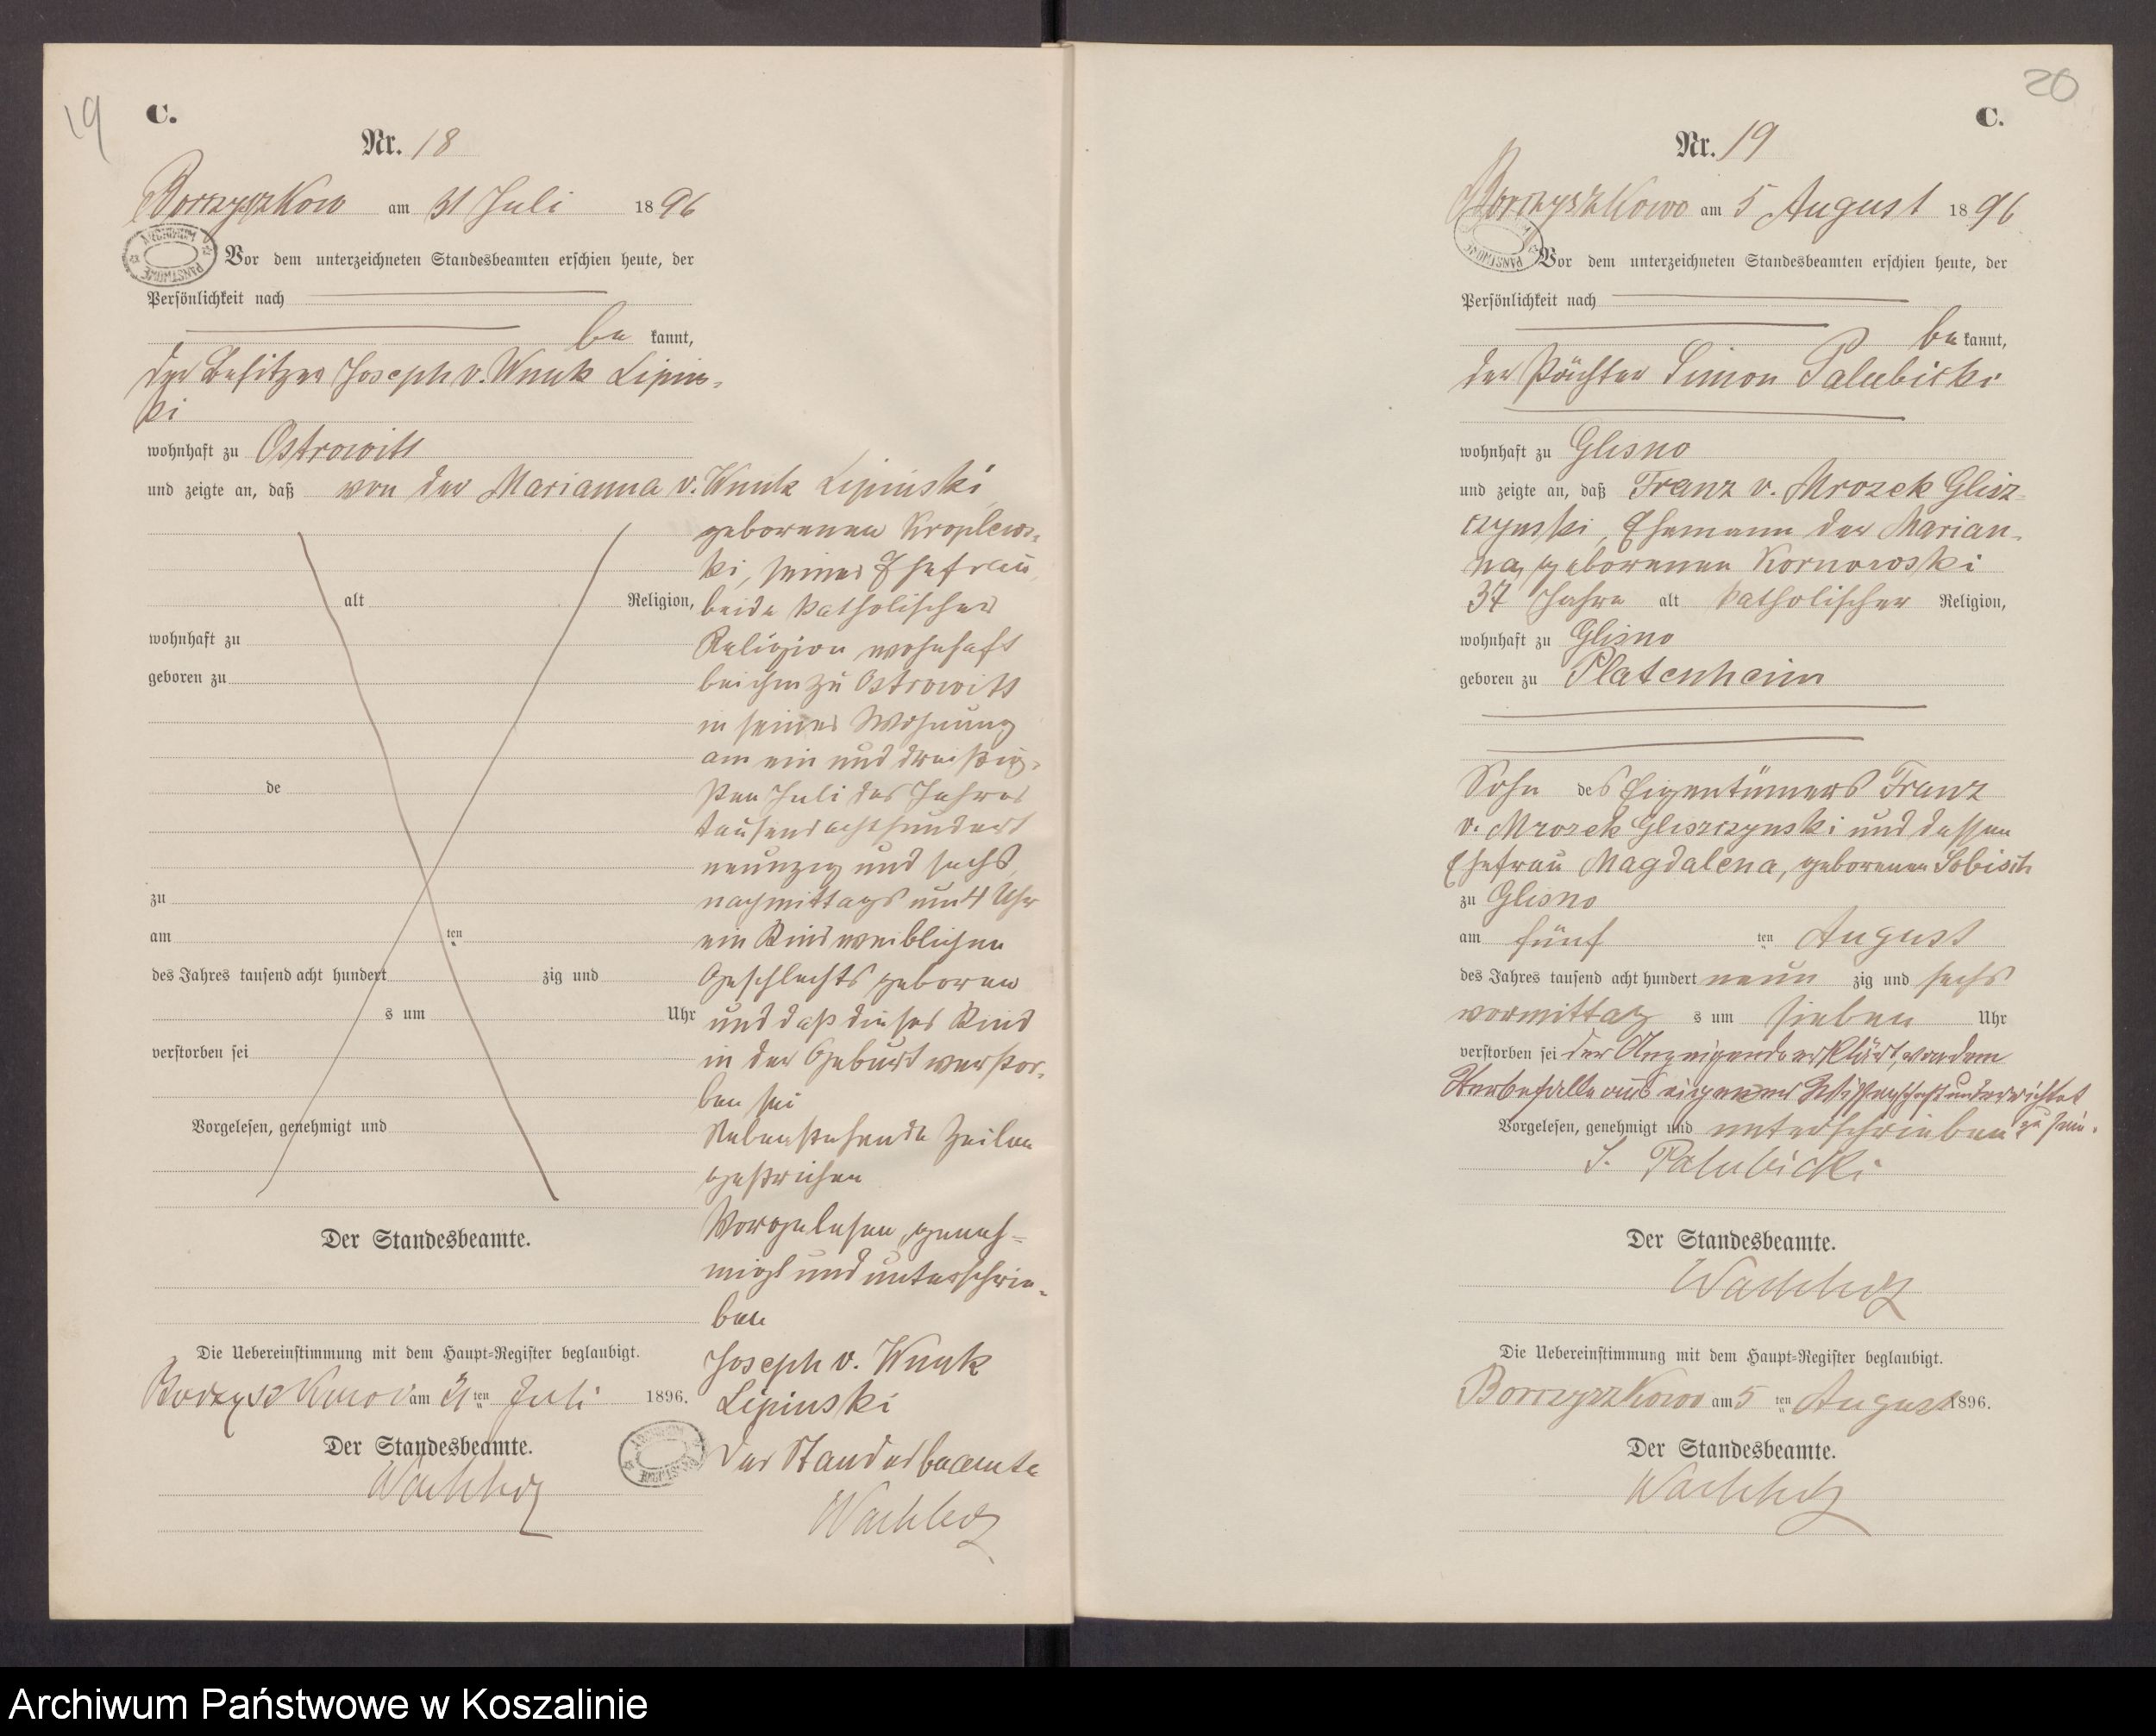 19
C.
Nr. 18
Borzyszkow am 31 Juli 1896
Vor dem unterzeichneten Standesbeamten erschien heute, der
Persönlichkeit nach
be kannt,
der Besitzer Joseph v. Wnuk Lipins-
ki
wohnhaft zu Ostrowitt
und zeigte an, daß von der Marianna v. Wnuk Lipinski
geborenen Kroplews-
ki, seiner Ehefrau,
alt Religion, beide katholischer
wohnhaft zu Religion wohnhaft
geboren zu bei ihm zu Ostrowitt
in seiner Wohnung
am ein und dreißig-
de sten Juli des Jahres
tausend achthundert
neunzig und sechs
zu nachmittags um 4 Uhr
am ten ein Kind weiblichen
des Jahres tausend acht hundert zig und Geschlechts geboren
s um Uhr und daß dieses Kind
verstorben sei in der Geburt verstor-
ben sei
Vorgelesen, genehmigt und Nebenstehende Zeilen
gestrichen
Vorgelesen, geneh-
Der Standesbeamte.
migt und unterschrie-
ben
Die Uebereinstimmung mit dem Haupt-Register beglaubigt.
Joseph v. Wnuk
am 31 ten Juli 1896. Lipinski
Der Standesbeamte.
Der Standesbeamte
20
C.
Nr. 19
Borzyszkowo am 5 August 1896
Vor dem unterzeichneten Standesbeamten erschien heute, der
Persönlichkeit nach
be kannt,
der Pächter Simon Palubicki
wohnhaft zu Glisno
und zeigte an, daß Franz v. Mrozek Glisz-
czynski, Ehemann der Marian-
na, geborenen Kornowski
37 Jahre alt katholischer Religion,
wohnhaft zu Glisno
geboren zu Platenheim
Sohn des Eigentümers Franz
v. Mrozek Gliszczynski und dessen
Ehefrau Magdalena, geborenen
zu Glisno
am fünf ten August
des Jahres tausend acht hundert neun zig und sechs
vormittag s um sieben Uhr
verstorben sei der Anzeigende erklärt, von dem
Sterbefalle aus eigener Wissenschaft unterrichtet
Vorgelesen, genehmigt und unterschrieben zu sein.
S. Palubicki
Der Standesbeamte.
Die Uebereinstimmung mit dem Haupt-Register beglaubigt.
Borzyszkowo am 5 ten August 1896.
Der Standesbeamte.
Archiwum Państwowe w Koszalinie